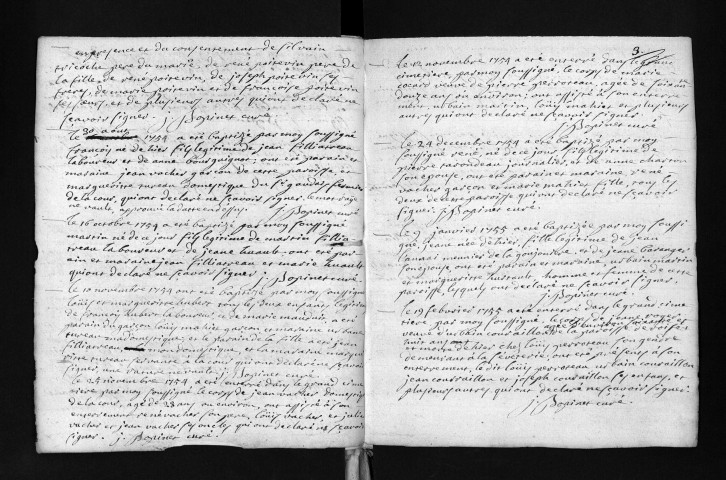 en presence et du consentement de silvain
tricoche pere du marié, de rené poitevin pere de
la fille de rené poitevin, de joseph poitevin ses
freres, de marie poitevin et de françoise poitevin
ses sœurs, et de plusieurs autres qui ont declaré ne
sçavoir signer. j. Bopinet curé
le 30 aout 1754 a eté baptizé par moy soussigné
françois né de hier fils legitime de jean filliatreau
laboureur et de anne bourguignon; ont eté parain et
maraine jean vacher garçon de cette paroisse, et
marguerite tureau domestique du
de la cour, qui ont declaré ne sçavoir signer, le mot rayé
ne vaut, approuvé la datte en dessus. j. Bopinet curé
le 16 octobre 1754 a eté baptizé par moy soussigné
martin né de ce jour fils legitime de martin fillia-
treau laboureur et de jeane huault, ont eté par-
ain et maraine jean filliatreau et marie huault
qui ont declaré ne sçavoir signer. j. Bopinet curé
le 10 novembre 1754 ont eté baptizé par moy soussigné
loüis et marguerite hubert tous les deux enfans legitimes
de françois hubert laboureur et de marie
parain du garçon loüis mahier garçon et maraine
et le parain de la fille a eté jean
filliatreau domestique, et la maraine marguerite
tureau servante a la cour qui ont declaré ne sçavoir
signer, j. Bopinet curé
le 25 novembre 1754 a eté enterré dans le grand cime-
tiere par moy soussigné le corps de jean vacher domestique
de la cour, agé de 23 ans ou environ, ont assisté a son
enterrement rené vacher son pere, loüis vacher, et julien
vacher et jean vacher ses oncles qui ont declaré ne sçavoir
signer. j. Bopinet curé.
3.
le 12 novembre 1754 a eté enterré dans le grand
cimetiere, par moy soussigné, le corps de marie
cocard veuve de pierre perroteau, agée de soixante
douze ans ou environ, ont assisté a son enterre-
ment, urbain marin, loüis mahier et plusieurs
autres qui ont declaré ne sçavoir signer.
j. Bopinet curé
le 24 decembre 1754 a eté baptizé par moy
soussigné rené, né de ce jour fils legitime de
pierre rarondeau journalier, et de anne charron
son epouse, ont eté parain et maraine, rené
vacher garçon et marie mahier fille, tous les
deux de cette paroisse qui ont declaré ne sçavoir
signer. j. Bopinet curé.
le 9 janvier 1755 a eté baptizée par moy soussi-
gné, jeane née de hier, fille legitime de jean
meunier de la et de jeane
son epouse, ont eté parain et maraine, urbain martin
et marguerite homme et femme de cette
paroisse, lesquels ont declaré ne sçavoir signer,
j. Bopinet curé
le 19 fevrier 1755 a eté enterré dans le grand cime-
tiere, par moy soussigné, le corps de jeane
veuve d'urbain courvaillon agée d'environ soixante et
huit ans
et morte de hier chez loüis perroteau son gendre
demeurant a la ont eté presens a son
enterrement, le dit loüis perroteau, urbain courvaillon
jean courvaillon et joseph courvaillon ses enfans, et
plusieurs autres, qui ont declaré ne sçavoir signer.
j. Bopinet curé.